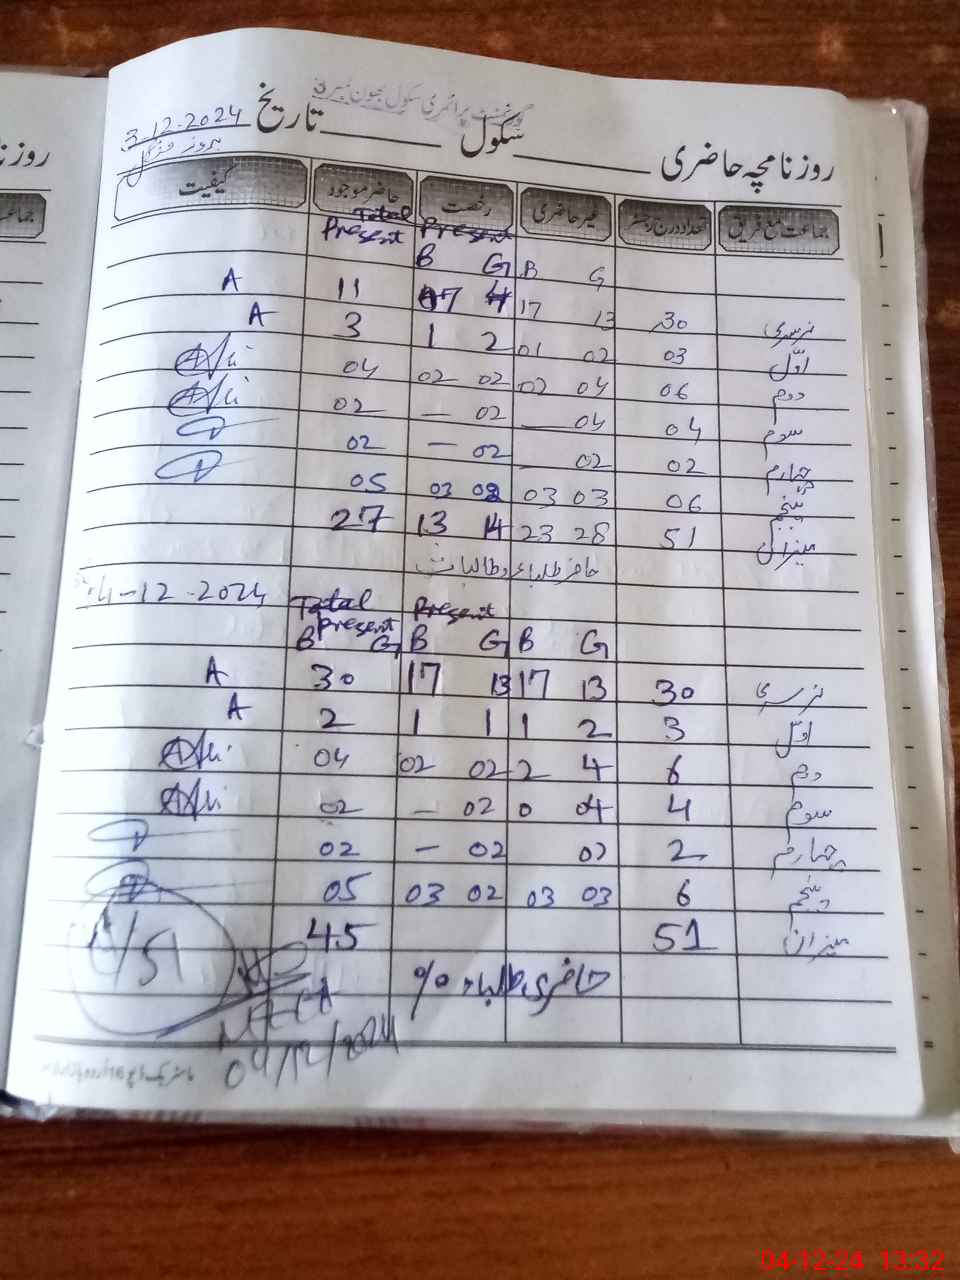 گورنمنٹ پرائمری سکول بھون نمبر 3
روزنامچہ حاضری ــــ سکول ــــ تاریخ 3-12-2024
بروز منگل
جماعت مع فریق تعداد درج رجسٹر غیر حاضری رخصت حاضر موجود کیفیت
Total Present Present
B G B G
نرسری 30 13 17 4 7 11 A
اوّل 03 02 01 2 1 3 A
دوم 06 04 02 02 02 04
سوم 04 04 — 02 — 02
چہارم 02 02 - 02 — 02
پنجم 06 03 03 02 03 05
میزان 51 28 23 14 13 27
حاضر طلباء و طالبات
4-12-2024
Total Present Present
B G B G B G
نرسری 30 13 17 13 17 30 A
اوّل 3 2 1 1 1 2 A
دوم 6 4 2 02 02 04
سوم 4 04 0 02 - 02
چہارم 2 02 02 - 02
پنجم 6 03 03 02 03 05
میزان 51 45
حاضری طلباء %
/51
04/12/2024
04-12-24 13:32